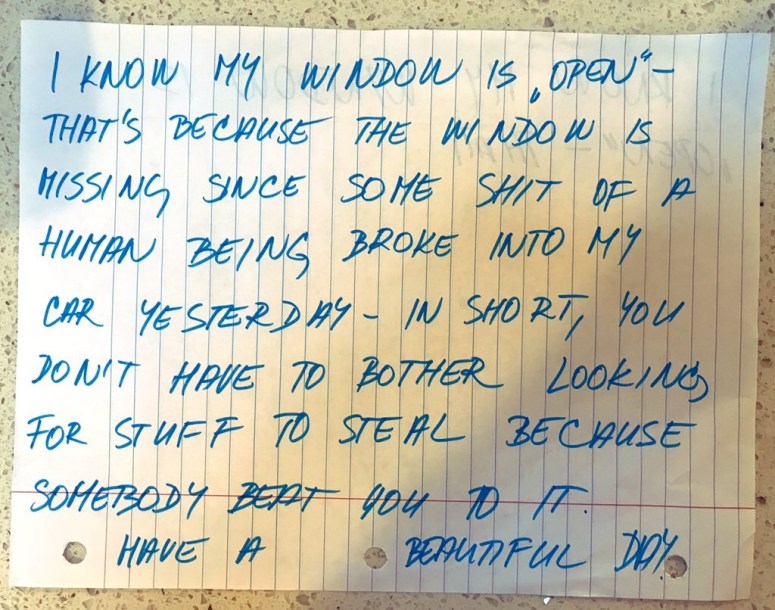 I KNOW MY WINDOW IS „OPEN“–
THAT'S BECAUSE THE WINDOW IS
MISSING SINCE SOME SHIT OF A
HUMAN BEING BROKE INTO MY
CAR YESTERDAY – IN SHORT, YOU
DON'T HAVE TO BOTHER LOOKING
FOR STUFF TO STEAL BECAUSE
SOMEBODY BEAT YOU TO IT.
HAVE A BEAUTIFUL DAY